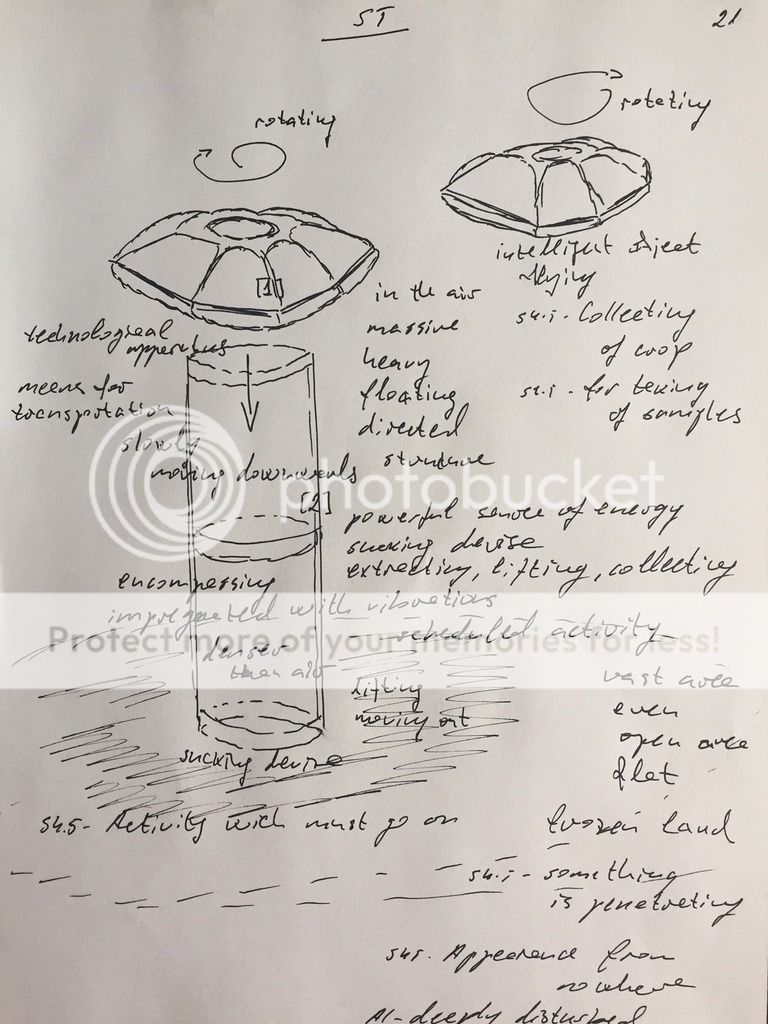 ST
21
rotating
rotating
intelligent object
flying
[1]
in the air
massive
heavy
floating
directed
structure
S4.i - Collecting
of crop
S4.i - for taking
of samples
technological
apparatus
means for
transpotation
slowly
moving downwards
[2]
powerful source of energy
sucking devise
extracting, lifting, collecting
encompessing
impregnated with vibrations
- scheduled activity
denser
then air
lifting
moving out
vast area
even
open area
flat
sucking devise
S4.5 - Activity wich must go on
frozen land
S4.i - something
is penetrating
S4.5. Appearence from
nowhere
AI - deeply disturbed
photobucket
Protect more of your memories for less!